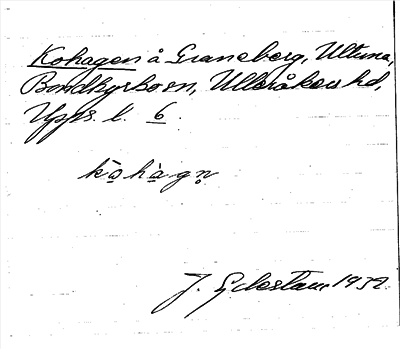 Kohagen å Graneberg, Ultuna,
Bondkyrko sn, Ulleråkers hd,
Upps. l. 6.
kọ̀hạ̀gṇ
J. 1932.